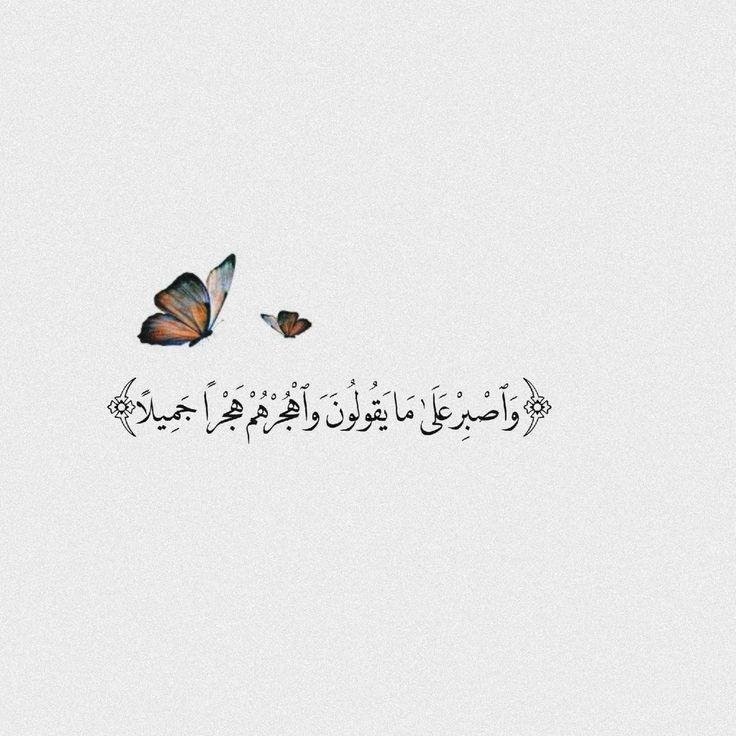 ﴿وَٱصْبِرْ عَلَىٰ مَا يَقُولُونَ وَٱهْجُرْهُمْ هَجْرًا جَمِيلًا﴾